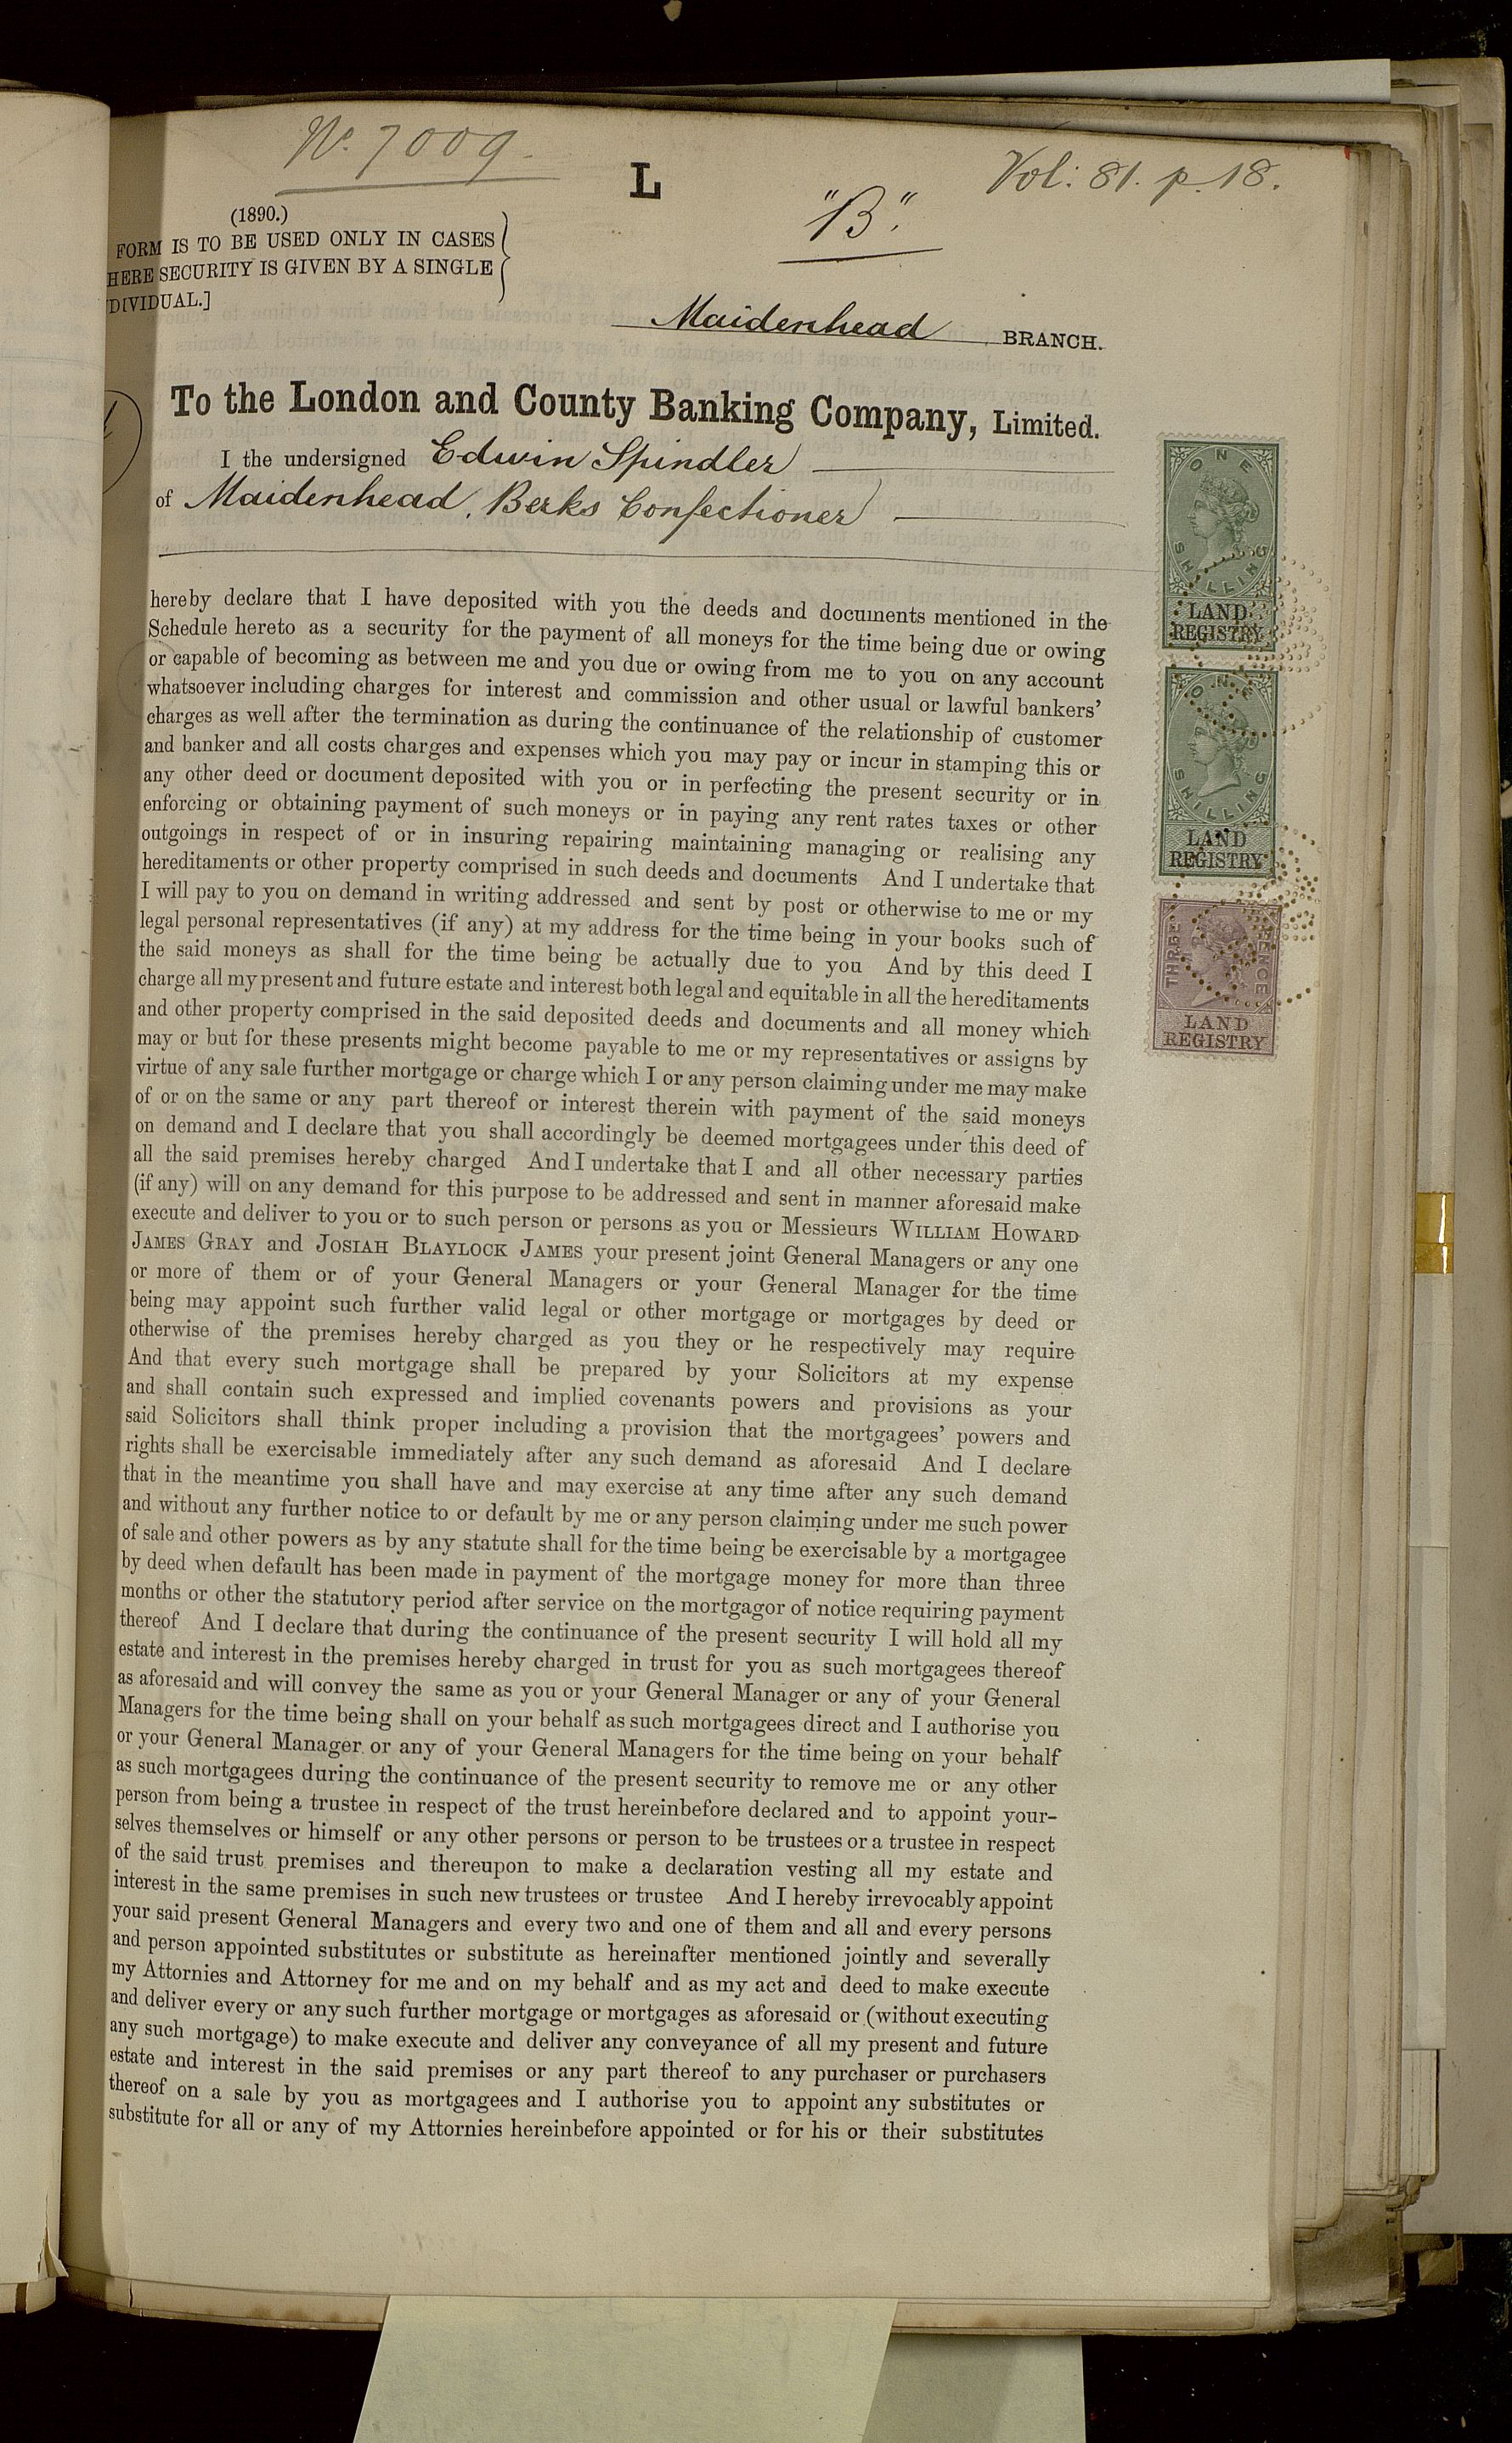 No. 7009.
L
Vol: 81. p. 18.
"B".
(1890.)
FORM IS TO BE USED ONLY IN CASES
HERE SECURITY IS GIVEN BY A SINGLE
DIVIDUAL.]
Maidenhead BRANCH.
To the London and County Banking Company, Limited.
I the undersigned Edwin Spindler
of Maidenhead, Berks Confectioner
hereby declare that I have deposited with you the deeds and documents mentioned in the
Schedule hereto as a security for the payment of all moneys for the time being due or owing
or capable of becoming as between me and you due or owing from me to you on any account
whatsoever including charges for interest and commission and other usual or lawful bankers'
charges as well after the termination as during the continuance of the relationship of customer
and banker and all costs charges and expenses which you may pay or incur in stamping this or
any other deed or document deposited with you or in perfecting the present security or in
enforcing or obtaining payment of such moneys or in paying any rent rates taxes or other
outgoings in respect of or in insuring repairing maintaining managing or realising any
hereditaments or other property comprised in such deeds and documents And I undertake that
I will pay to you on demand in writing addressed and sent by post or otherwise to me or my
legal personal representatives (if any) at my address for the time being in your books such of
the said moneys as shall for the time being be actually due to you And by this deed I
charge all my present and future estate and interest both legal and equitable in all the hereditaments
and other property comprised in the said deposited deeds and documents and all money which
may or but for these presents might become payable to me or my representatives or assigns by
virtue of any sale further mortgage or charge which I or any person claiming under me may make
of or on the same or any part thereof or interest therein with payment of the said moneys
on demand and I declare that you shall accordingly be deemed mortgagees under this deed of
all the said premises hereby charged And I undertake that I and all other necessary parties
(if any) will on any demand for this purpose to be addressed and sent in manner aforesaid make
execute and deliver to you or to such person or persons as you or Messieurs WILLIAM HOWARD
JAMES GRAY and JOSIAH BLAYLOCK JAMES your present joint General Managers or any one
or more of them or of your General Managers or your General Manager for the time
being may appoint such further valid legal or other mortgage or mortgages by deed or
otherwise of the premises hereby charged as you they or he respectively may require
And that every such mortgage shall be prepared by your Solicitors at my expense
and shall contain such expressed and implied covenants powers and provisions as your
said Solicitors shall think proper including a provision that the mortgagees' powers and
rights shall be exercisable immediately after any such demand as aforesaid And I declare
that in the meantime you shall have and may exercise at any time after any such demand
and without any further notice to or default by me or any person claiming under me such power
of sale and other powers as by any statute shall for the time being be exercisable by a mortgagee
by deed when default has been made in payment of the mortgage money for more than three
months or other the statutory period after service on the mortgagor of notice requiring payment
thereof And I declare that during the continuance of the present security I will hold all my
estate and interest in the premises hereby charged in trust for you as such mortgagees thereof
as aforesaid and will convey the same as you or your General Manager or any of your General
Managers for the time being shall on your behalf as such mortgagees direct and I authorise you
or your General Manager or any of your General Managers for the time being on your behalf
as such mortgagees during the continuance of the present security to remove me or any other
person from being a trustee in respect of the trust hereinbefore declared and to appoint your-
selves themselves or himself or any other persons or person to be trustees or a trustee in respect
of the said trust premises and thereupon to make a declaration vesting all my estate and
interest in the same premises in such new trustees or trustee And I hereby irrevocably appoint
your said present General Managers and every two and one of them and all and every persons
and person appointed substitutes or substitute as hereinafter mentioned jointly and severally
my Attornies and Attorney for me and on my behalf and as my act and deed to make execute
and deliver every or any such further mortgage or mortgages as aforesaid or (without executing
any such mortgage) to make execute and deliver any conveyance of all my present and future
estate and interest in the said premises or any part thereof to any purchaser or purchasers
thereof on a sale by you as mortgagees and I authorise you to appoint any substitutes or
substitute for all or any of my Attornies hereinbefore appointed or for his or their substitutes
ONE
SHILLING
LAND
REGISTRY
ONE
SHILLING
LAND
REGISTRY
THREE
PENCE
LAND
REGISTRY